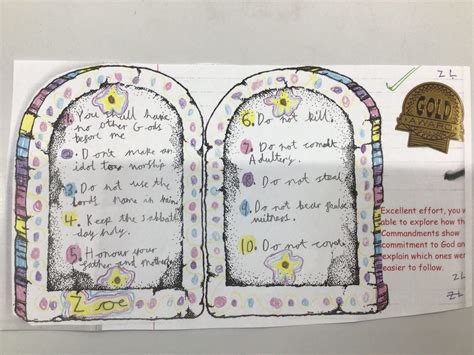 1. You shall have
no other Gods
before me
2. Don't make an
idol to worship
3. Do not use the
Lords name in vain
4. Keep the sabbath
day holy.
5. Honour your
father and mother
Zoe
6. Do not kill.
7. Do not comit
Adultery.
8. Do not steal
9. Do not bear false
witness.
10. Do not covet
Z L
GOLD
AWARD
Excellent effort, you w
able to explore how th
Commandments show
commitment to God an
explain which ones wer
easier to follow.
Z L
Z L